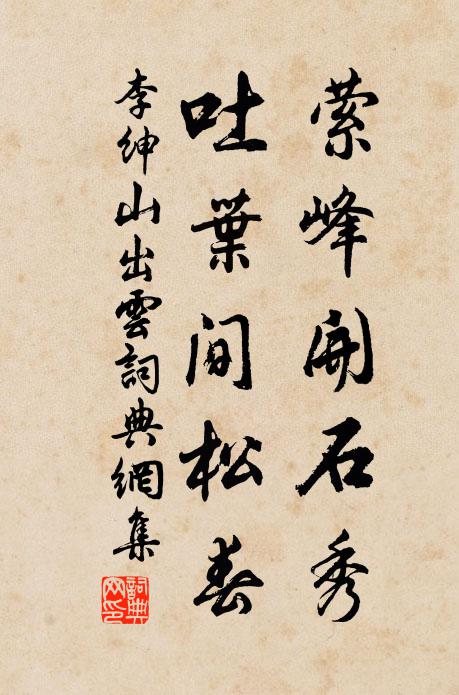 萦峰開石秀
吐葉間松春
李紳山出雲詞典網集
詞典网印